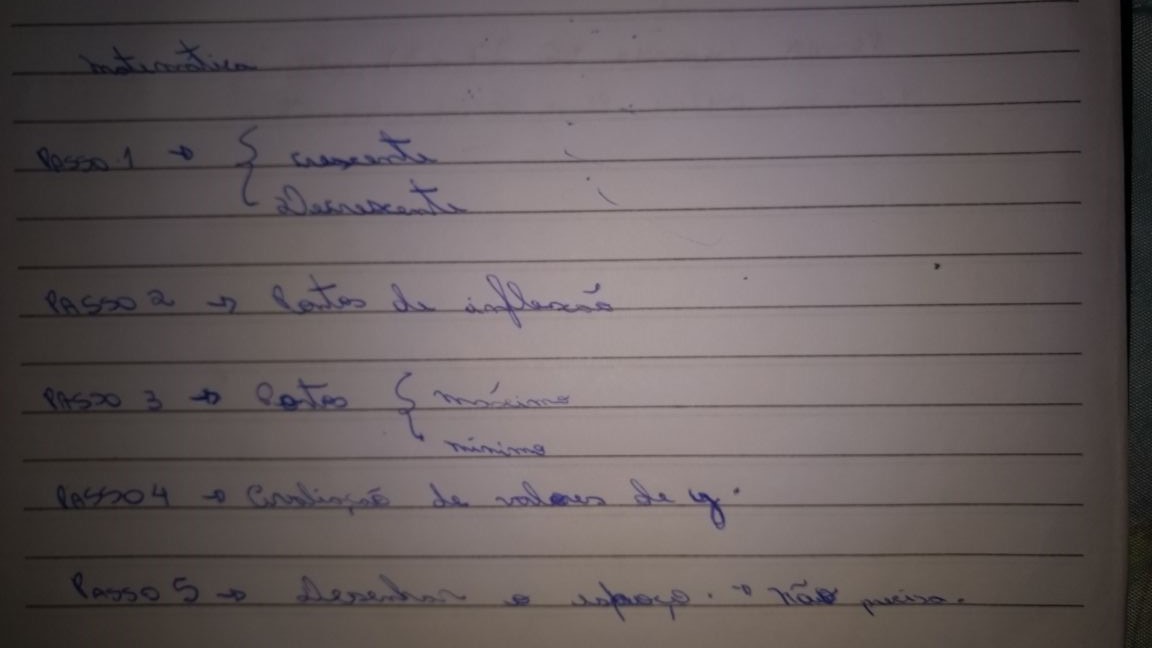 Matemática
PASSO 1 → { crescente
Decrescente
PASSO 2 → Pontos de inflexão
PASSO 3 → Pontos { máximo
mínimo
PASSO 4 → Avaliação de valores de y.
PASSO 5 → Desenhar o espaço. → Não precisa.